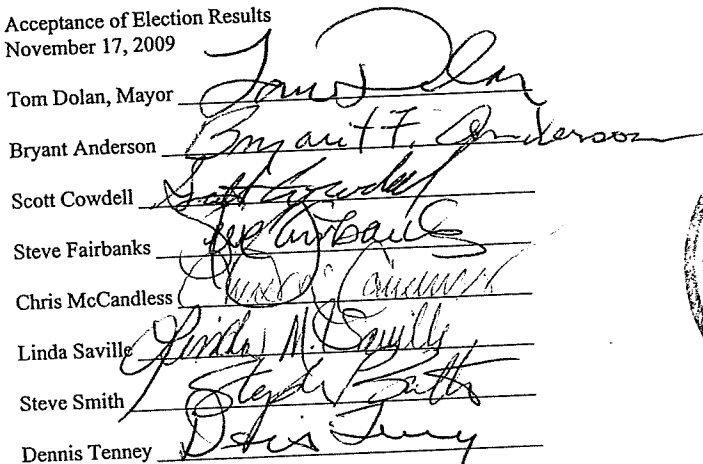 Acceptance of Election Results
November 17, 2009
Tom Dolan, Mayor Tom Dolan
Bryant Anderson Bryant F. Anderson
Scott Cowdell Scott Cowdell
Steve Fairbanks Steve Fairbanks
Chris McCandless
Linda Saville Linda M. Saville
Steve Smith Stephen P Smith
Dennis Tenney Dennis Tenney